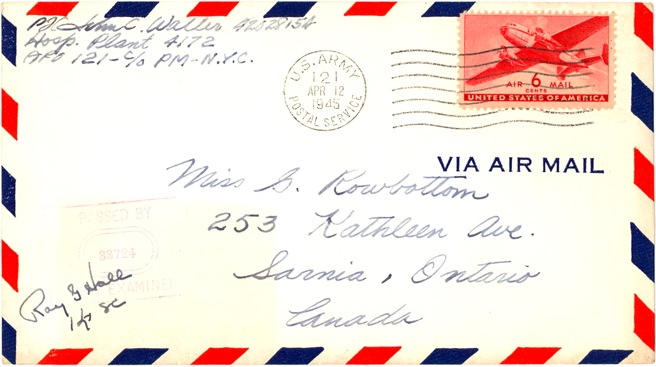 Pvt John C. Waller 42028154
Hosp. Plant 4172
APO 121-c/o PM-N.Y.C.
U.S. ARMY
121
APR 12
1945
POSTAL SERVICE
6
CENTS
AIR MAIL
UNITED STATES OF AMERICA
VIA AIR MAIL
Miss G. Rowbottom
253 Kathleen Ave.
Sarnia, Ontario
Canada
PASSED BY
38724
EXAMINER
Ray G Hall